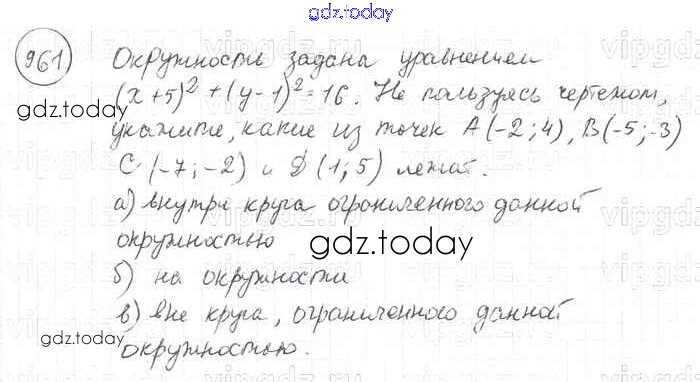 gdz.today
961 Окружность задана уравнением
(x+5)² + (y-1)² = 16. Не пользуясь чертежом,
gdz.today
укажите, какие из точек A(-2;4), B(-5;-3)
C(-7;-2) и D(1;5) лежат.
а) внутри круга ограниченного данной
окружностью
gdz.today
б) на окружности
в) вне круга, ограниченного данной
gdz.today
окружностью.